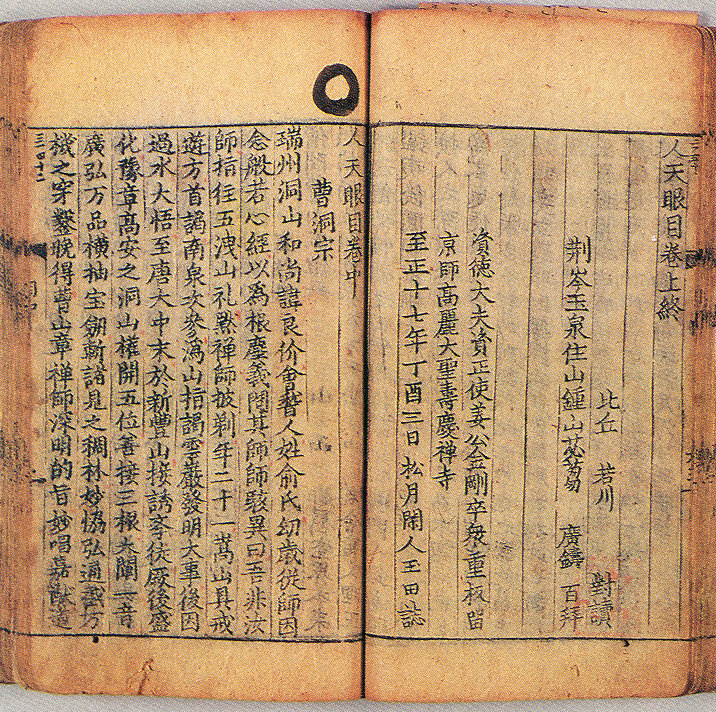 人天眼目卷上終
比丘 若川 對讀
荆岑玉泉住山鍾山苾蒭 廣鑄 百拜
資德大夫資正使姜公金剛卒衆重板留
京師高麗大聖壽慶禪寺
至正十七年丁酉三日 松月閑人王田誌
人天眼目卷中
曹洞宗
瑞州洞山和尚諱良价會稽人姓俞氏幼歲從師因
念般若心經以爲根塵義問其師師駭異曰吾非汝
師指往五洩山礼黙禅師披剃年二十一嵩山具戒
遊方首謁南泉次參潙山指謁雲巖發明大事後因
過水大悟至唐大中末於新豐山接誘學徒厥後盛
化豫章高安之洞山權開五位善接三根大闡一音
廣弘万品横抽宝劒斬諸見之稠林妙恊弘通截万
機之穿鑿晚得曹山章禅師深明的旨妙唱嘉猷道